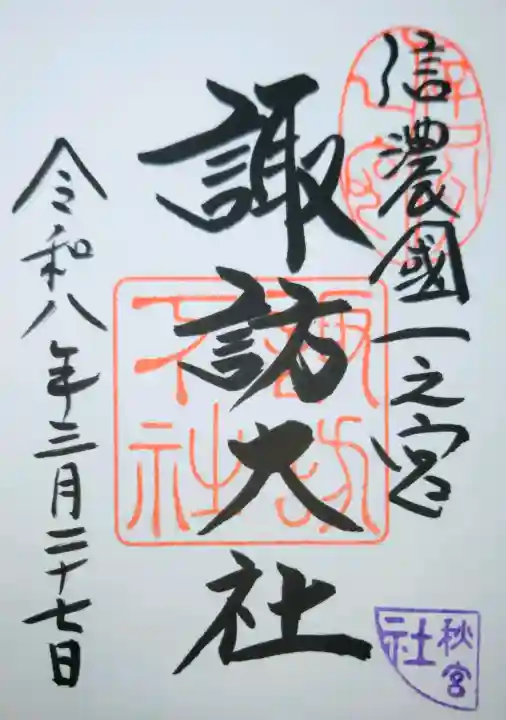 信濃國一之宮
諏訪大社
令和八年三月二十七日
諏訪
下社
秋宮
社